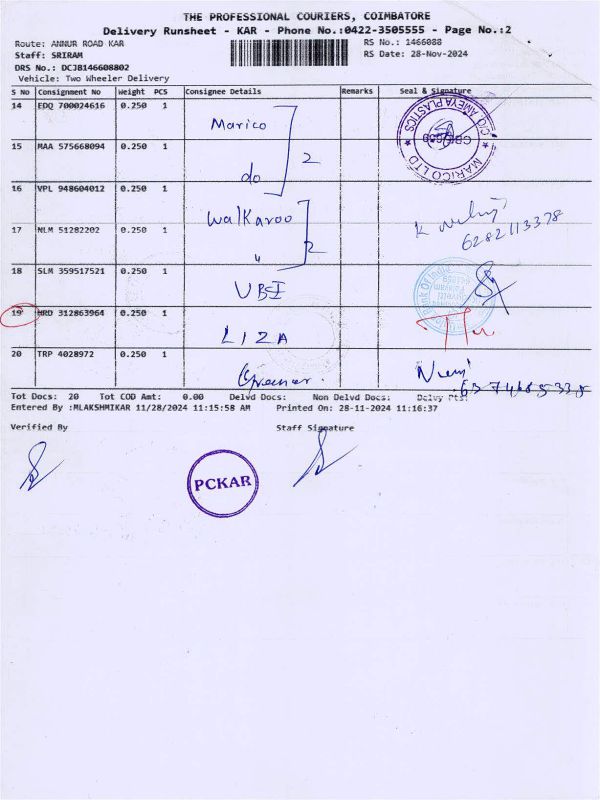 THE PROFESSIONAL COURIERS, COIMBATORE
Delivery Runsheet - KAR - Phone No.:0422-3505555 - Page No.:2
Route: ANNUR ROAD KAR RS No.: 1466088
Staff: SRIRAM RS Date: 28-Nov-2024
DRS No.: DCJ8146608802
Vehicle: Two Wheeler Delivery
S No Consignment No Weight PCS Consignee Details Remarks Seal & Signature
14 EDQ 700024616 0.250 1 Marico
15 MAA 575668094 0.250 1 do 2
MARICO LTD C/O AMEYA PLASTICS
16 VPL 948604012 0.250 1 Walkaroo
17 NLM 51282202 0.250 1 " 2
6282113378
18 SLM 359517521 0.250 1 UBI
19 HRD 312863964 0.250 1 LIZA
20 TRP 4028972 0.250 1
Tot Docs: 20 Tot COD Amt: 0.00 Delvd Docs: Non Delvd Docs: Delvy Pts:
Entered By :MLAKSHMIKAR 11/28/2024 11:15:58 AM Printed On: 28-11-2024 11:16:37
Verified By Staff Signature
PCKAR